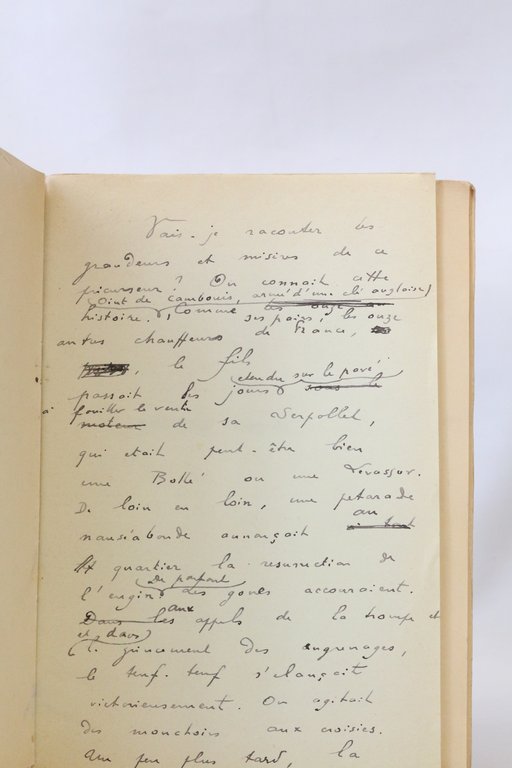 Vais-je raconter les
grandeurs et misères de ce
précurseur ? On connait cette
Oint de cambouis, armé d'une clé anglaise,
histoire. Comme ses pairs, les onze
autres chauffeurs de France,
, le fils
étendu sur le pavé,
passait des jours sous le
à fouiller le ventre
moteur de sa Serpollet,
qui était peut-être bien
une Bollé ou une Levassor.
De loin en loin, une pétarade
au
nauséabonde annonçait
quartier la résurrection de
De partout
l'engin, des gones accouraient.
aux
Dans les appels de la trompe et
et, dans
le grincement des engrenages,
le teuf-teuf s'élançait
victorieusement. On agitait
des mouchoirs aux croisées.
Un peu plus tard, la